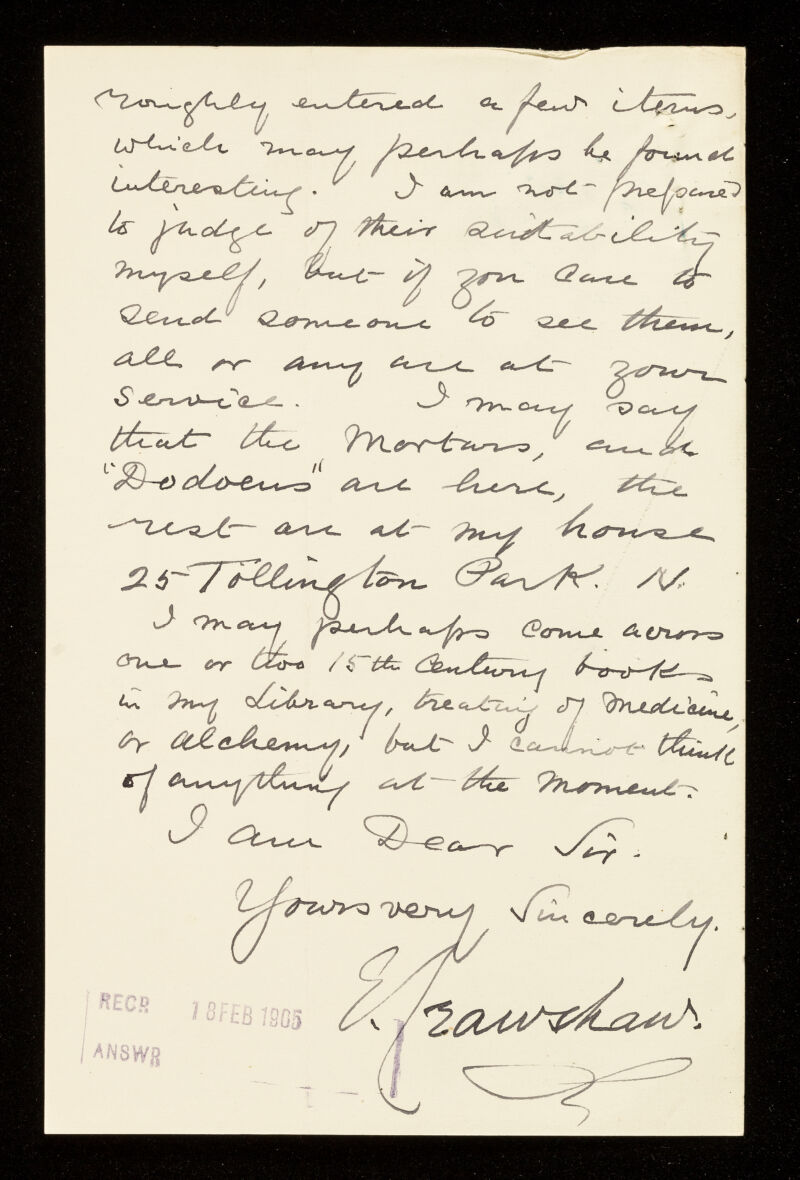 roughly entered a few items,
which may perhaps be found
interesting. I am not prepared
to judge of their suitability
myself, but if you care to
send someone to see them,
all or any are at your
service. I may say
that the Mortars, and
"Dodoens" are here, the
rest are at my house
25 Tollington Park. N.
I may perhaps come across
one or two 15th Century books
in my Library, treating of Medicine,
or Alchemy, but I cannot think
of anything at the moment.
I am Dear Sir.
Yours very Sincerely.
E. Crawshaw.
RECD 18 FEB 1905
ANSWD